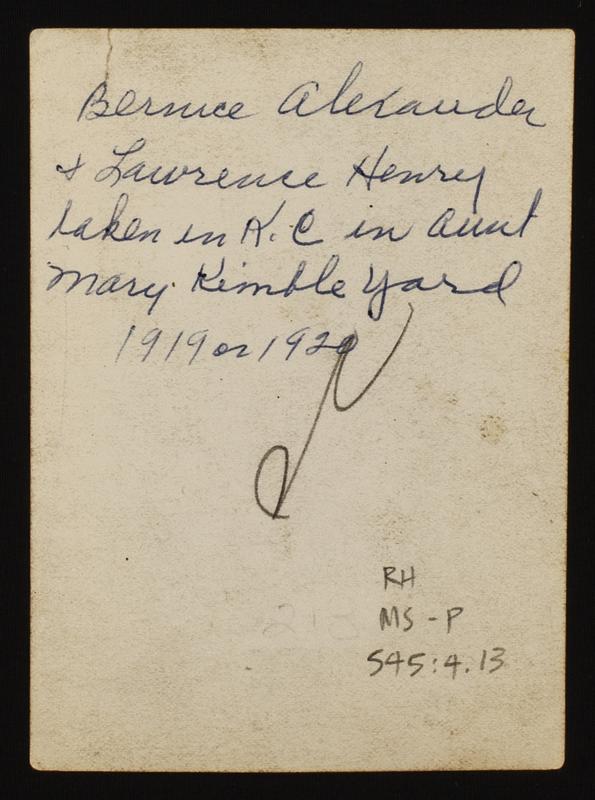 Bernice Alexander
+ Lawrence Henry
taken in K.C in Aunt
Mary Kimble Yard
1919 or 1920
RH
MS-P
545:4.13